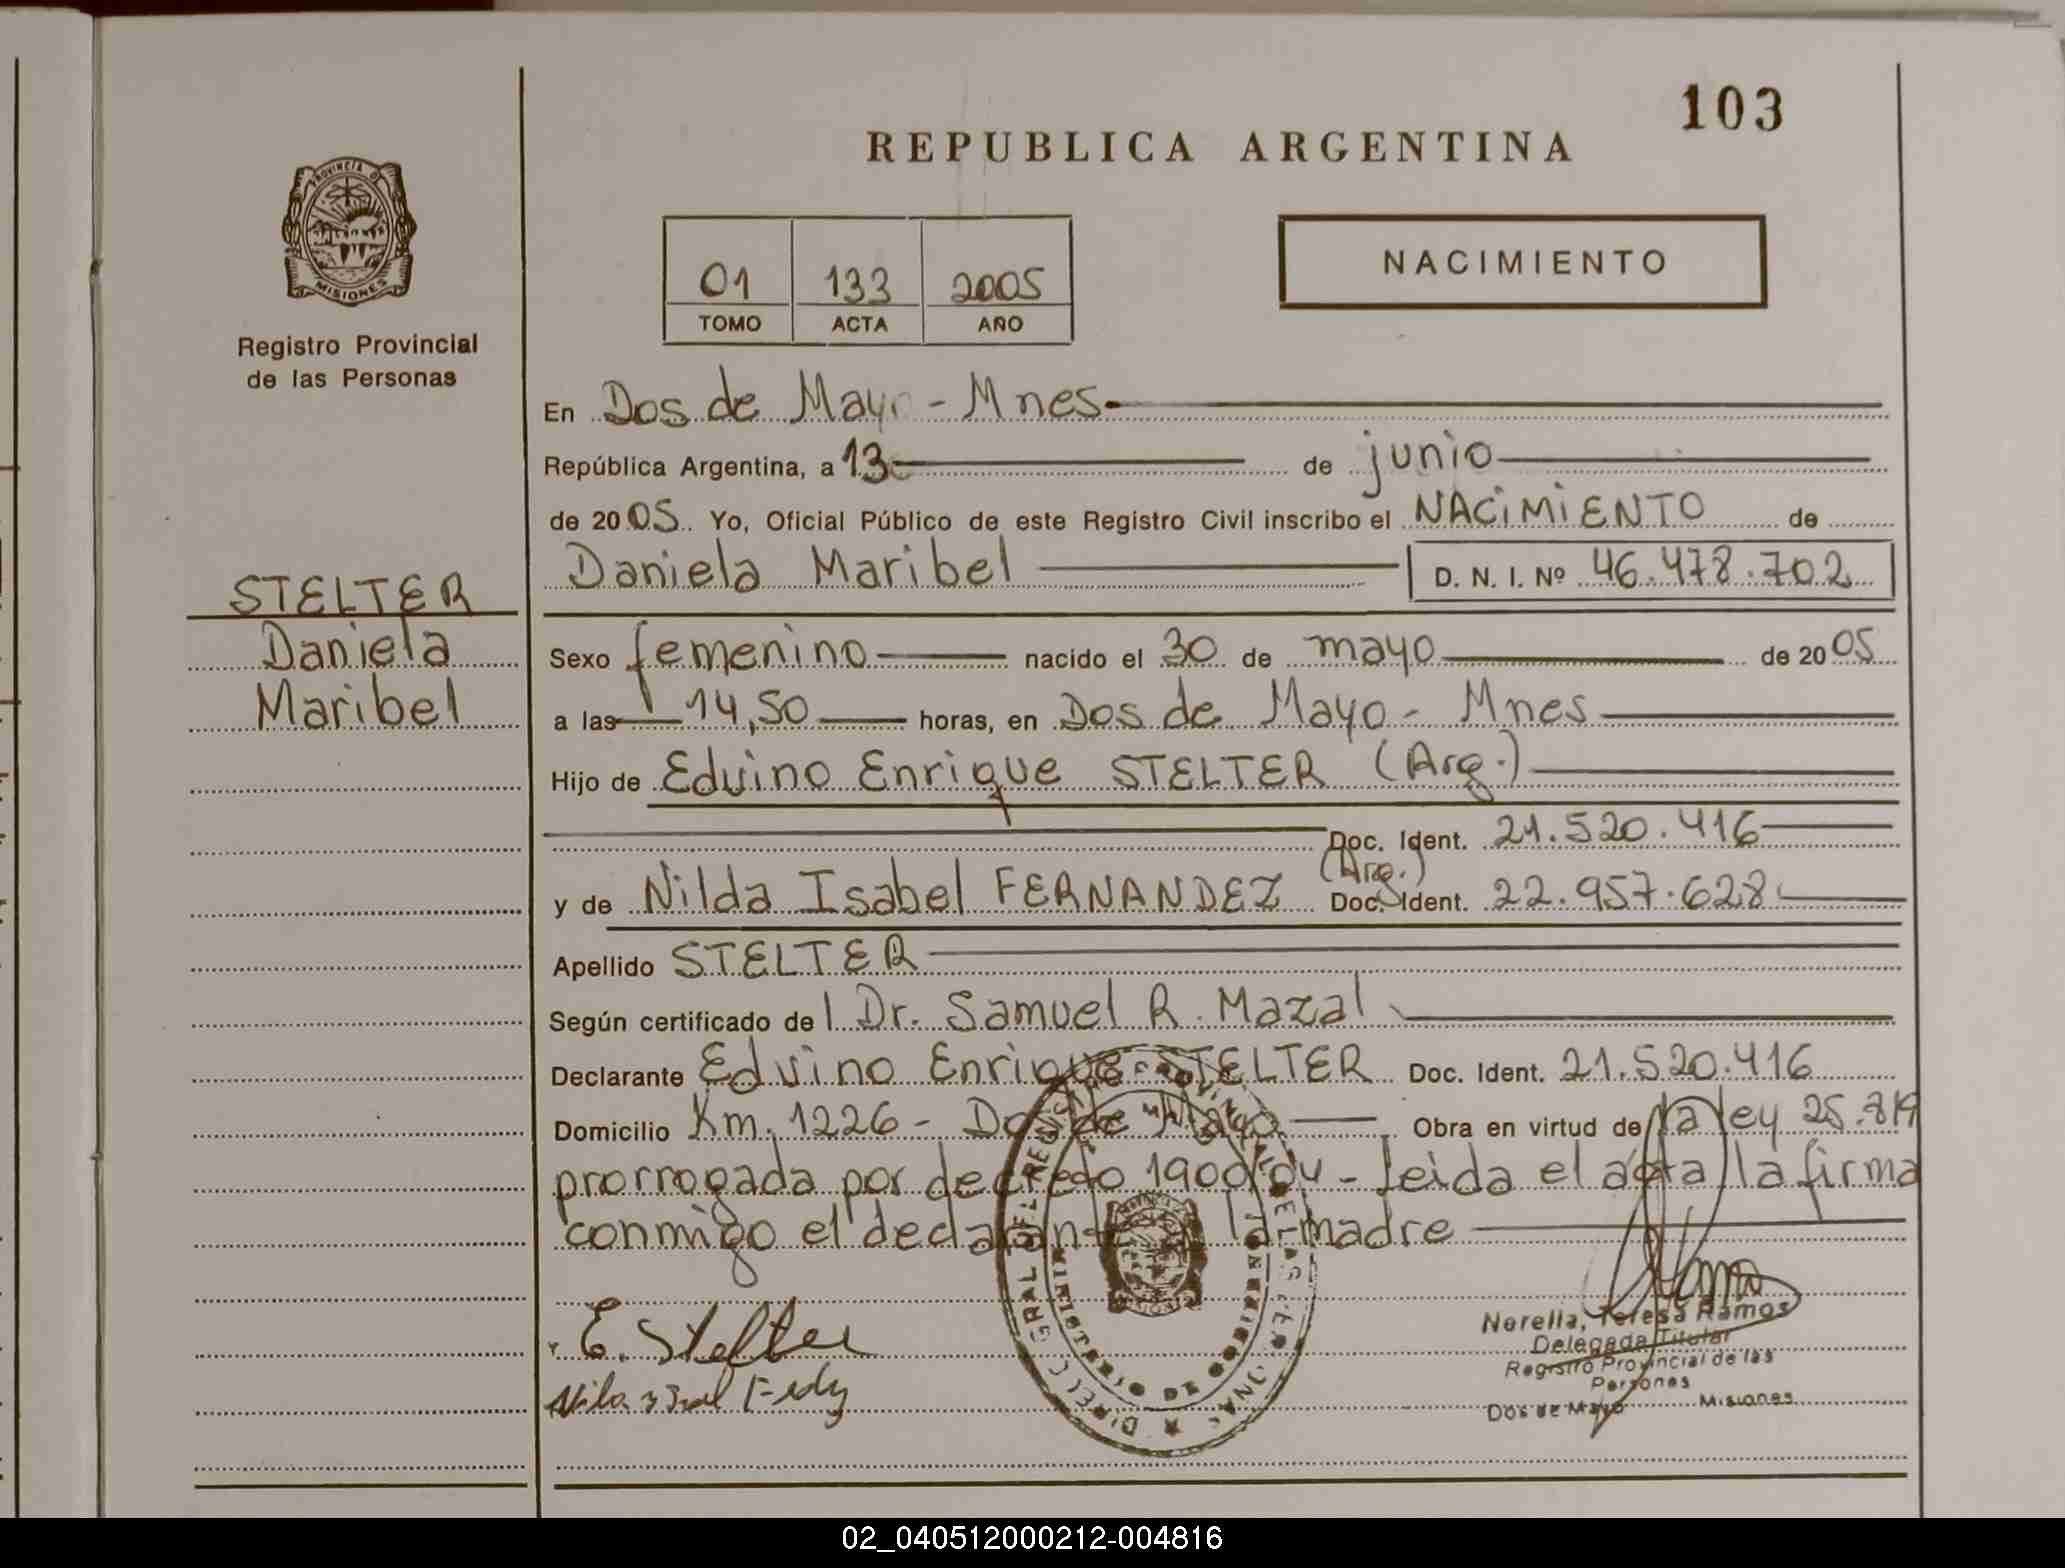 103
REPUBLICA ARGENTINA
PROVINCIA DE
MISIONES
Registro Provincial
de las Personas
01 133 2005
TOMO ACTA AÑO
NACIMIENTO
En Dos de Mayo - Mnes
República Argentina, a 13 de junio
de 2005 Yo, Oficial Público de este Registro Civil inscribo el NACIMIENTO de
Daniela Maribel D. N. I. Nº 46.478.702
STELTER
Daniela
Maribel
Sexo femenino nacido el 30 de mayo de 2005
a las 14,50 horas, en Dos de Mayo - Mnes
Hijo de Edvino Enrique STELTER (Arg.)
Doc. Ident. 21.520.416
y de Nilda Isabel FERNANDEZ (Arg.) Doc. Ident. 22.957.628
Apellido STELTER
Según certificado de Dr. Samuel R. Mazal
Declarante Edvino Enrique STELTER Doc. Ident. 21.520.416
Domicilio Km. 1226 - Dos de Mayo Obra en virtud de la ley 25.819
prorrogada por decreto 1900/04 - Leida el acta la firma
conmigo el declarante y la madre
E. Stelter
Norella, Teresa Ramos
Delegada Titular
Registro Provincial de las
Personas
Dos de Mayo Misiones
MINISTERIO DE GOBIERNO
02_040512000212-004816